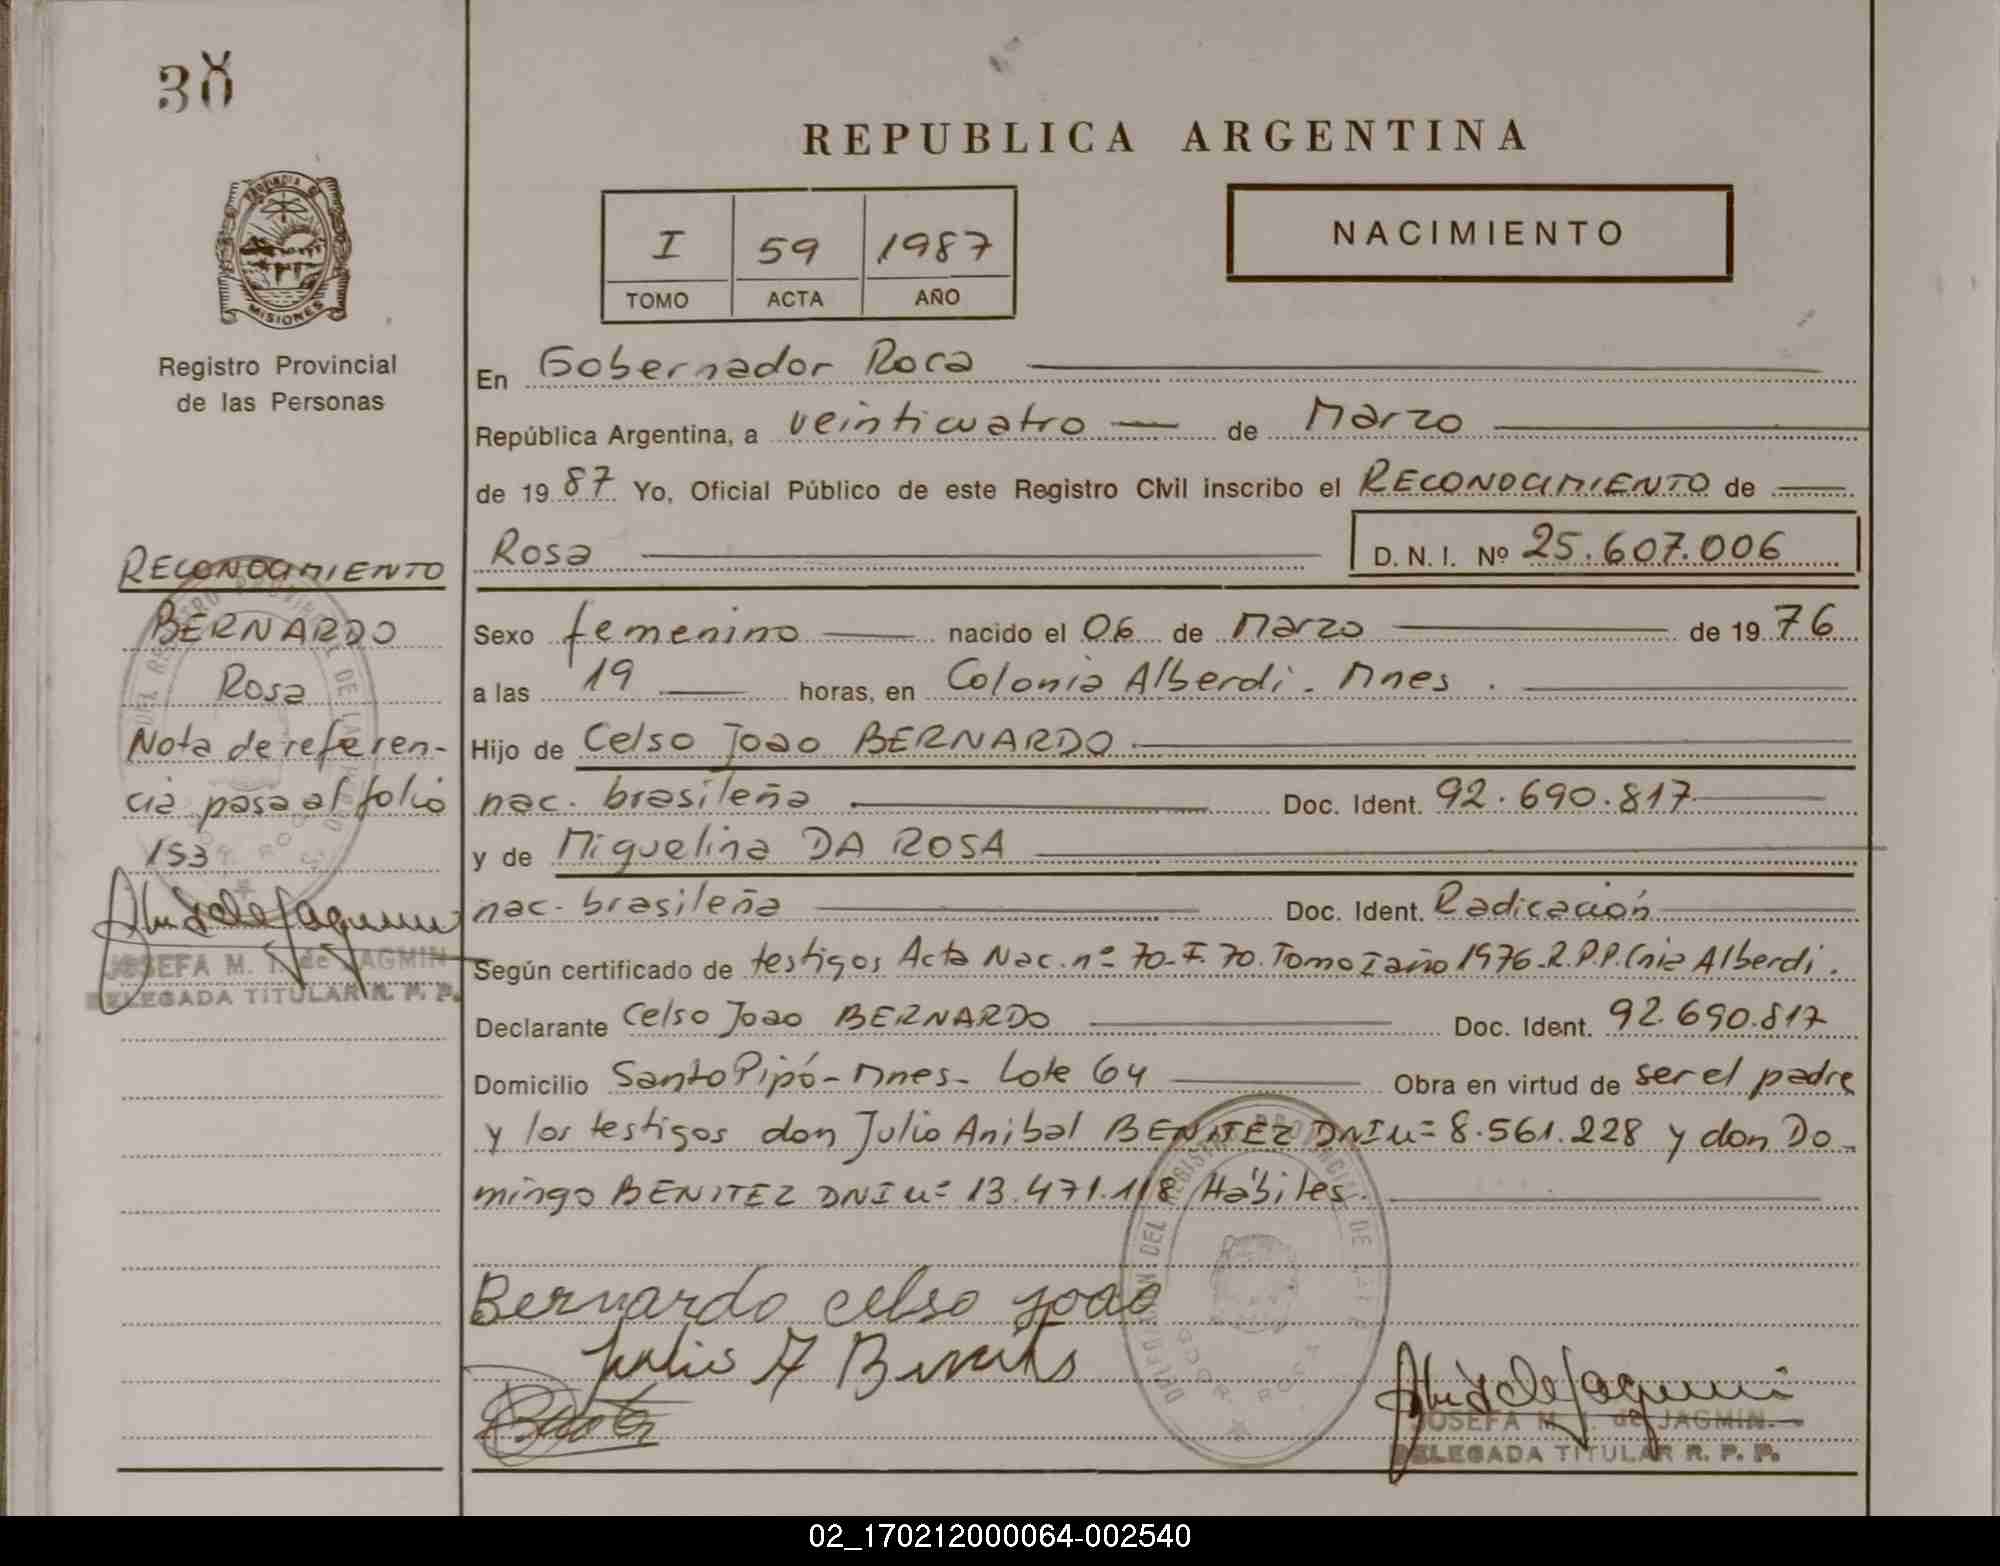 30
REPUBLICA ARGENTINA
NACIMIENTO
I 59 1987
TOMO ACTA AÑO
PROVINCIA DE MISIONES
Registro Provincial
de las Personas
En Gobernador Roca
República Argentina, a veinticuatro de Marzo
de 1987 Yo, Oficial Público de este Registro Civil inscribo el RECONOCIMIENTO de
Rosa D. N. I. Nº 25.607.006
Sexo femenino nacido el 06 de Marzo de 1976
a las 19 horas, en Colonia Alberdi - Mnes.
Hijo de Celso Joao BERNARDO
nac. brasileña Doc. Ident. 92.690.817
y de Miguelina DA ROSA
nac. brasileña Doc. Ident. Radicación
Según certificado de testigos Acta Nac. nº 70-F.70. Tomo I año 1976-R.P.P. Cnia Alberdi.
Declarante Celso Joao BERNARDO Doc. Ident. 92.690.817
Domicilio Santo Pipó - Mnes - Lote 64 Obra en virtud de ser el padre
y los testigos don Julio Anibal BENITEZ DNI nº 8.561.228 y don Do-
mingo BENITEZ DNI nº 13.471.118 Hábiles.
Bernardo Celso Joao
Julio A
JOSEFA M. I. de JAGMIN
DELEGADA TITULAR R. P. P.
RECONOCIMIENTO
BERNARDO
Rosa
Nota de referen-
cia pasa al folio
153
JOSEFA M. I. de JAGMIN
DELEGADA TITULAR R. P. P.
02_170212000064-002540